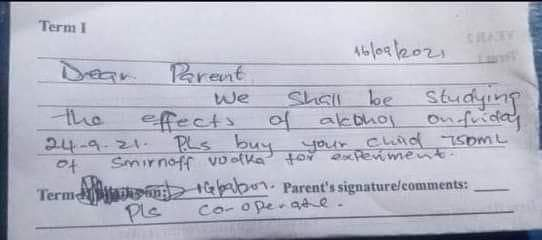 Term I
16/09/2021
Dear Parent
We Shall be Studying
the effects of alkohol on friday
24-9-21. Pls buy your child 750mL
of Smirnoff vodka for experiment.
Term Parent's signature/comments:
Pls co-operate.